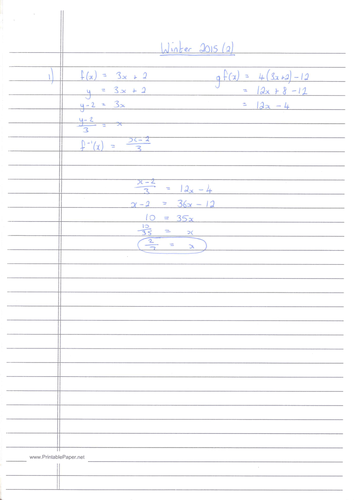 Winter 2015 (2)
1) f(x) = 3x + 2
y = 3x + 2
y-2 = 3x
y-2/3 = x
f⁻¹(x) = x-2/3
gf(x) = 4(3x+2) - 12
= 12x + 8 - 12
= 12x - 4
x-2/3 = 12x - 4
x - 2 = 36x - 12
10 = 35x
10/35 = x
2/7 = x
www.PrintablePaper.net